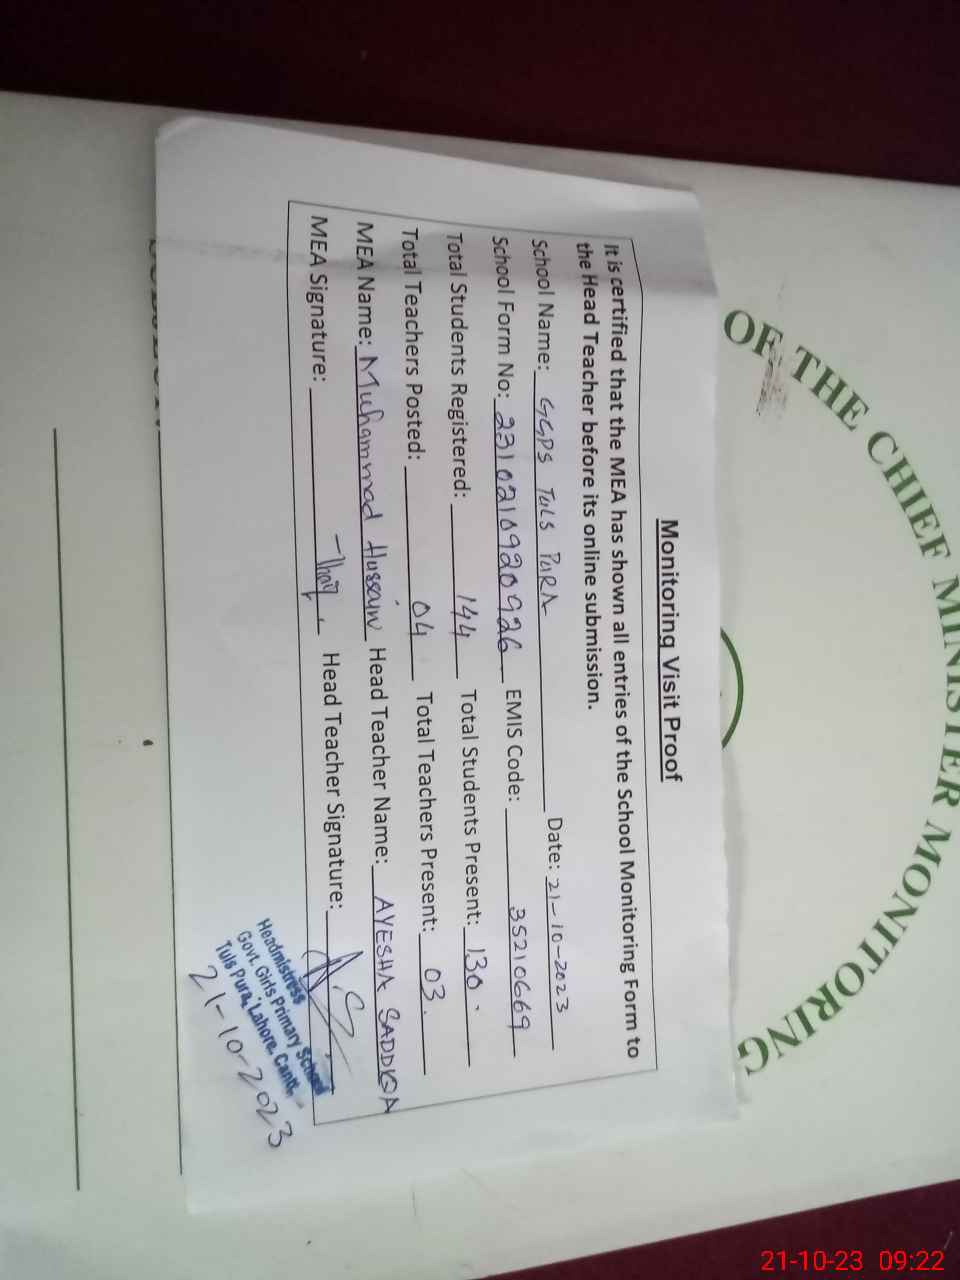 OF THE CHIEF MINISTER MONITORING
Monitoring Visit Proof
It is certified that the MEA has shown all entries of the School Monitoring Form to
the Head Teacher before its online submission.
School Name: GGPS TULS PURA Date: 21-10-2023
School Form No: 2310210920926 EMIS Code: 35210669
Total Students Registered: 144 Total Students Present: 130.
Total Teachers Posted: 04 Total Teachers Present: 03.
MEA Name: Muhammad Hussain Head Teacher Name: AYESHA SADDIQA
MEA Signature: Head Teacher Signature:
Headmistress
Govt. Girls Primary School
Tuls Pura, Lahore, Cantt.
21-10-2023
21-10-23 09:22